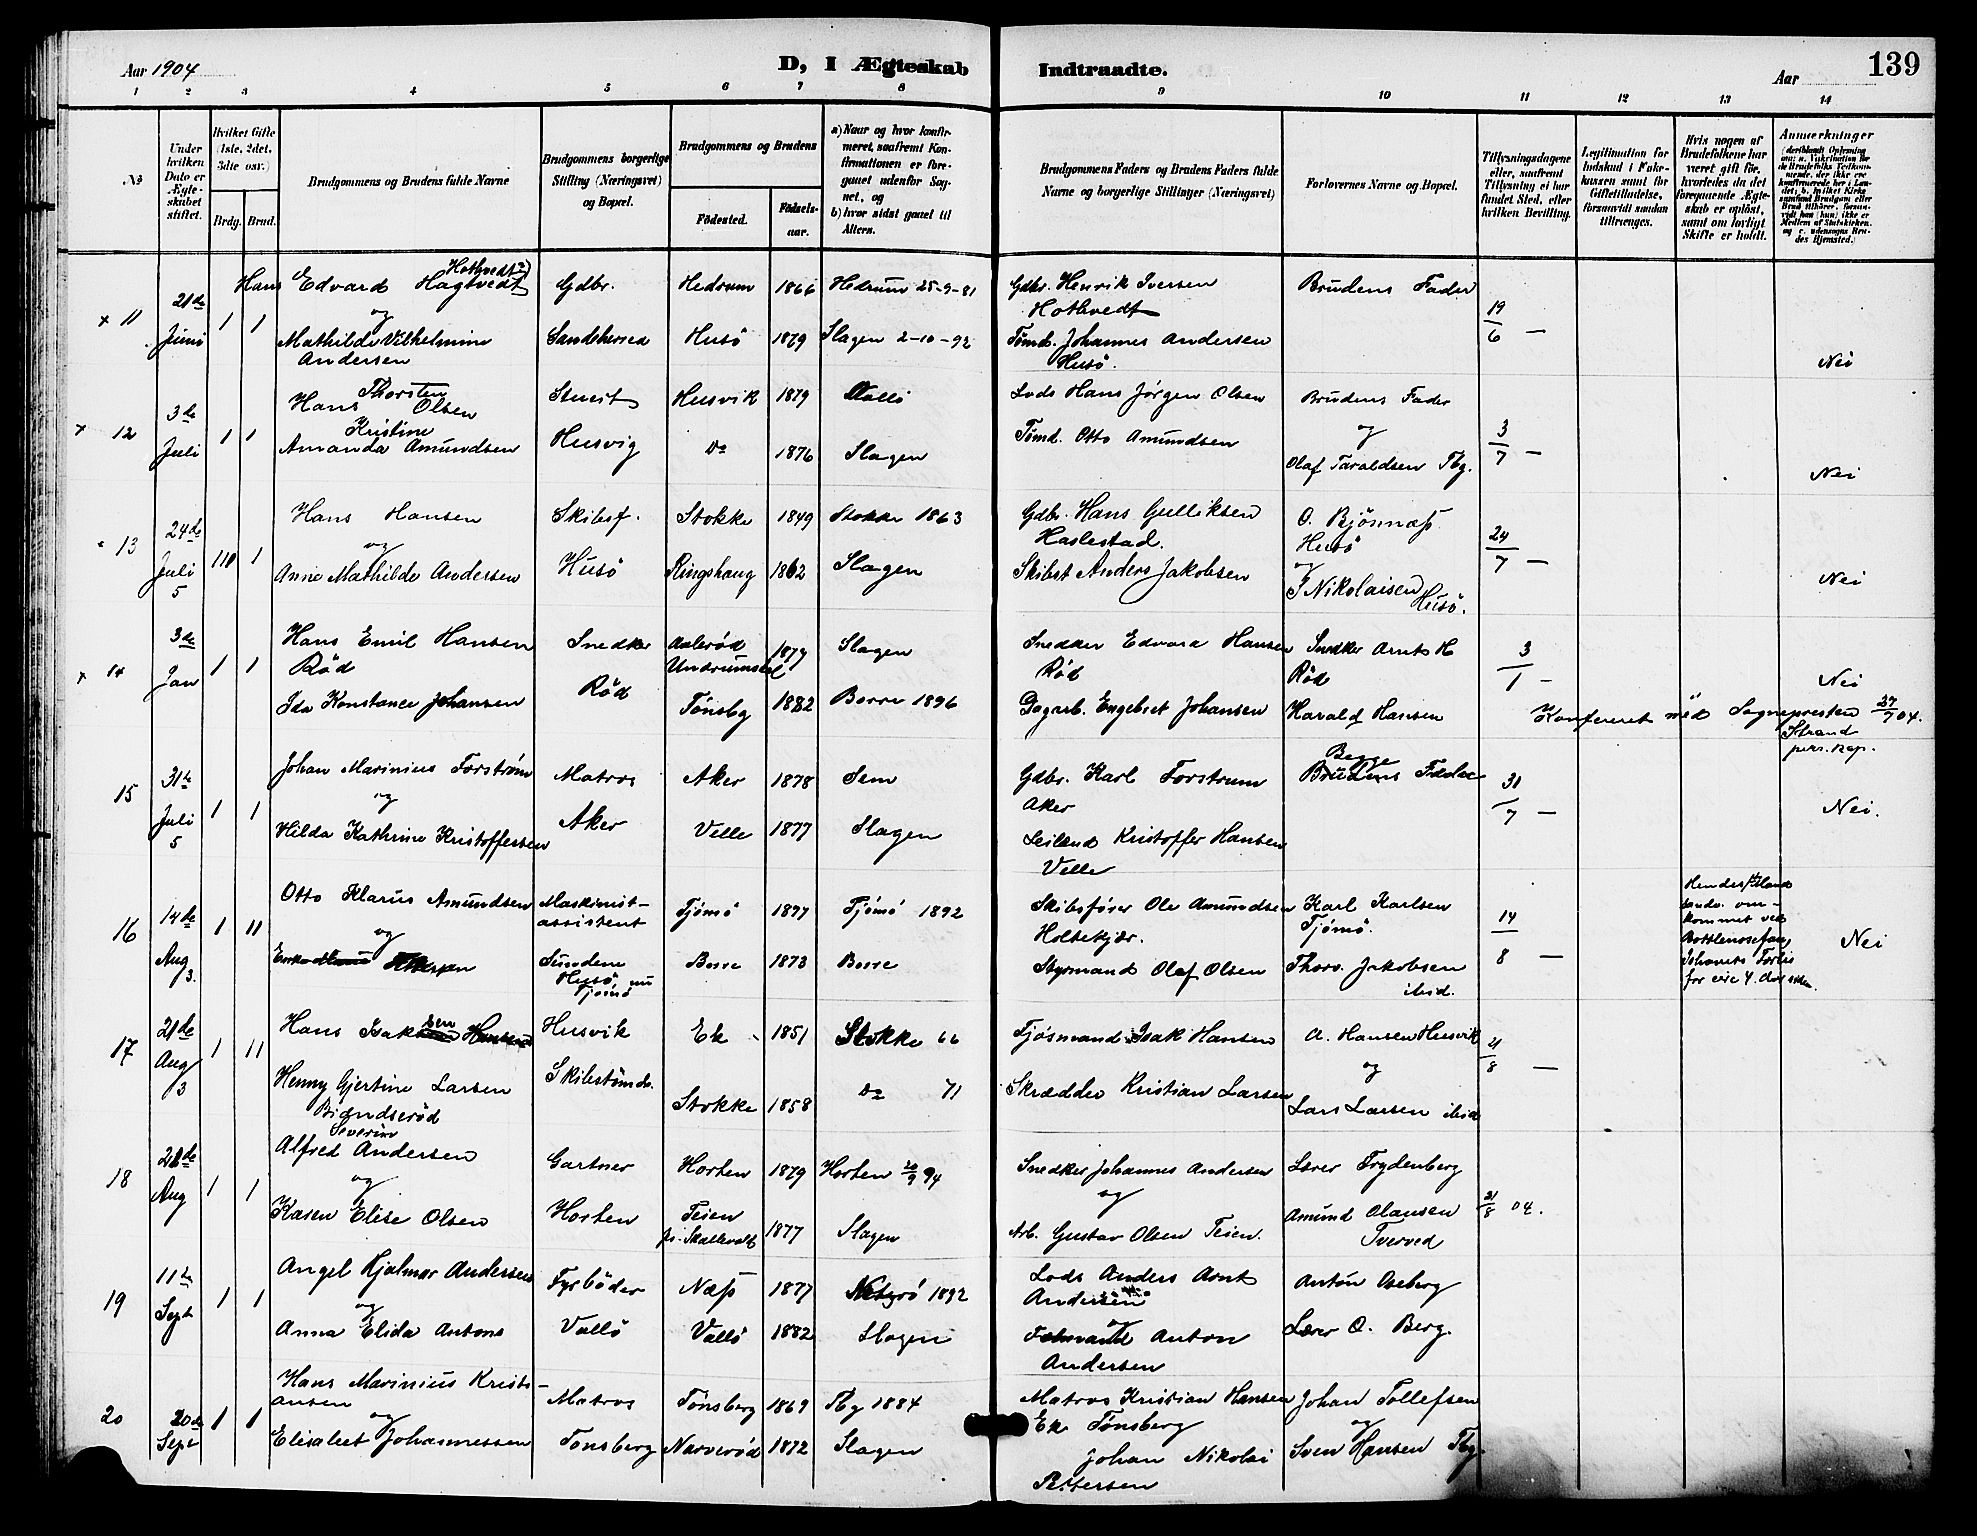 Aar 1904
D, I Ægteskab Indtraadte.
Aar
139
1 2 3 4 5 6 7 8 9 10 11 12 13 14
No
Under hvilken Dato er Ægteskabet stiftet.
Hvilket Gifte (1ste, 2det, 3die osv.)
Brdg. Brud.
Brudgommens og Brudens fulde Navne
Brudgommens borgerlige Stilling (Næringsvei) og Bopæl.
Brudgommens og Brudens
Fødested. Fødselsaar.
a) Naar og hvor konfirmeret, saafremt Konfirmationen er foregaaet udenfor Sognet, og
b) hvor sidst gaaet til Alters.
Brudgommens Faders og Brudens Faders fulde Navne og borgerlige Stillinger (Næringsvei)
Forlovernes Navne og Bopæl.
Tillysningsdagene eller, saafremt Tillysning ei har fundet Sted, efter hvilken Bevilling.
Legitimation for Indskud i Enkekassen samt for Giftetilladelse, forsaavidt saadan tiltrænges.
Hvis nogen af Brudefolkene har været gift før, hvorledes da det foregaaende Ægteskab er opløst, samt om lovligt Skifte er holdt.
Anmærkninger
x 11 21de Juni 1 1
Hans Edvard Hagtvedt Hothvedt?)
og
Mathilde Vilhelmine
Andersen
Gdbr. Sandeherred
Hedrum 1866 Hedrum 25-9-81
Husö 1879 Slagen 2-10-92
Gdbr. Henrik Iversen
Hothvedt
Tömd. Johannes Andersen
Husö.
Brudens Fader
19/6 —
Nei
x 12 3de Juli 1 1
Hans Thorsten Olsen
Kristine
Amanda Amundsen
Stuert Husvig
Husvik 1879 Vallö
Do 1876 Slagen
Lods Hans Jörgen Olsen
Tömd. Otto Amundsen
Brudens Fader
og
Olaf Taraldsen Tbg.
3/7 —
Nei
13 24de Juli 5 1
Hans Hansen
og
Anne Mathilde Andersen
Skibsf. Husö
Stokke 1849 Stokke 1863
Ringshaug 1862 Slagen
Gdbr. Hans Gulliksen
Haslestad.
Skibst Anders Jakobsen
O. Bjönnæss
Husö
og
J Nikolaisen Husö.
24/7 —
Nei
x 14 3de Jan 1 1
Hans Emil Hansen
Röd
Ida Konstance Johansen
Snedker Röd
Aaleröd
Undrumsdal 1877 Slagen
Tönsbg 1882 Borre 1896
Snedker Edvard Hansen
Röd
Dagarb. Engebret Johansen
Snedker Arnts H
Röd
Harald Hansen
3/1 —
Nei
Konfereret med Sognepresten 27/7 04.
Strand
pers. kap.
15 31te Juli 5 1 1
Johan Marinius Forström
og
Hilda Kathrine Kristoffersen
Matros Aker
Aker 1878 Sem
Velle 1877 Slagen
Gdbr. Karl Forstrum
Aker
Leilænd Kristoffer Hansen
Velle
Begge
Brudens Fædre
31/7 —
Nei.
16 14de Aug 3. 1 11
Otto Klarus Amundsen
og
Maskinist-
assistent
Husö, nu
Tjömö
Tjömö 1877 Tjömö 1892
Borre 1873 Borre
Skibsförer Ole Amundsen
Holtekjær.
Styrmand Olaf Olsen
Karl Karlsen
Tjömö.
Thorv. Jakobsen
ibid.
14/8 —
Hendes 1ste Mand
omkommet ved
for circ 4. Aar siden
Nei
17 21de Aug 3 1 11
Hans Isaksen
Henny Gjertine Larsen
Brændseröd
Husvik
Skibstömd.
Ek 1851 Stokke 66
Stokke 1858 Do 71
Tjösmand Isak Hansen
Skrædder Kristian Larsen
A. Hansen Husvik
og
Lars Larsen ibid
21/8 —
18 21de Aug 1 1
Severin
Alfred Andersen
og
Karen Elise Olsen
Gartner Horten
Horten 1879 Horten 20/9 94
Teien
pr. Skallevold 1877 Slagen
Snedker Johannes Andersen
og
Arb. Gustav Olsen Teien.
Lærer Frydenberg
Amund Olausen
Tverved
21/8 04.
19 11te Sept 1 1
Angel Hjalmar Andersen
og
Anna Elida Antons
Fyrböder Vallö
Næss 1877 Nøterö 1892
Vallö 1882 Slagen
Lods Anders Arnt
Andersen
og
Anton
Andersen
Anton Oseberg
Lærer O. Berg.
20 20de Sept 1 1
Hans Marinius Kristi-
ansen
og
Elisabet Johannessen
Matros Tönsberg
Tönsberg 1869 Tbg 1884
Narveröd 1872 Slagen
Matros Kristian Hansen
Ek Tönsberg
Johan Nikolai
Pettersen
Johan Tollefsen
og
Sven Hansen Tbg.